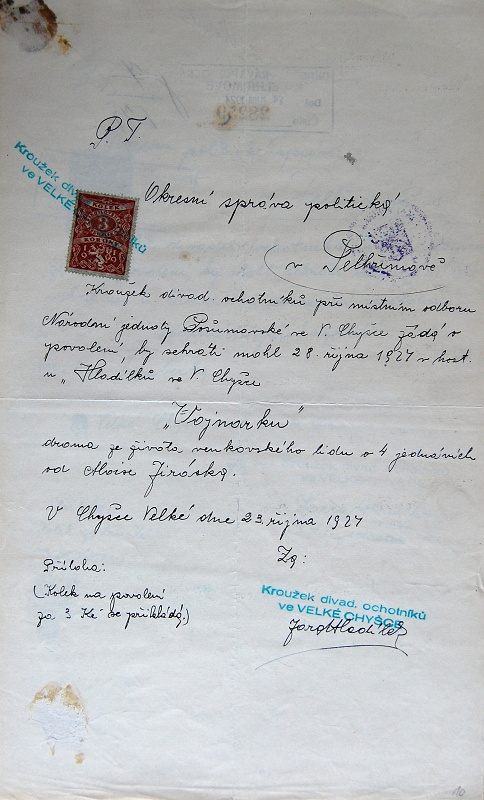 P. T.
Kroužek divad. ochotníků
ve VELKÉ
KOLEK
3
KORUNY
Okresní správa politická
v Pelhřimově
Kroužek divad. ochotníků při místním odboru
Národní jednoty Pošumavské ve V. Chyšce žádá o
povolení, by sehráti mohl 28. října 1927 v host.
u „Hladílků ve V. Chyšce
„Vojnarku"
drama ze života venkovského lidu o 4 jednáních
od Aloise Jiráska.
V Chyšce Velké dne 23. října 1927
Za:
Příloha:
(Kolek na povolení
za 3 Kč se přikládá.)
Kroužek divad. ochotníků
ve VELKÉ CHYŠCE
10